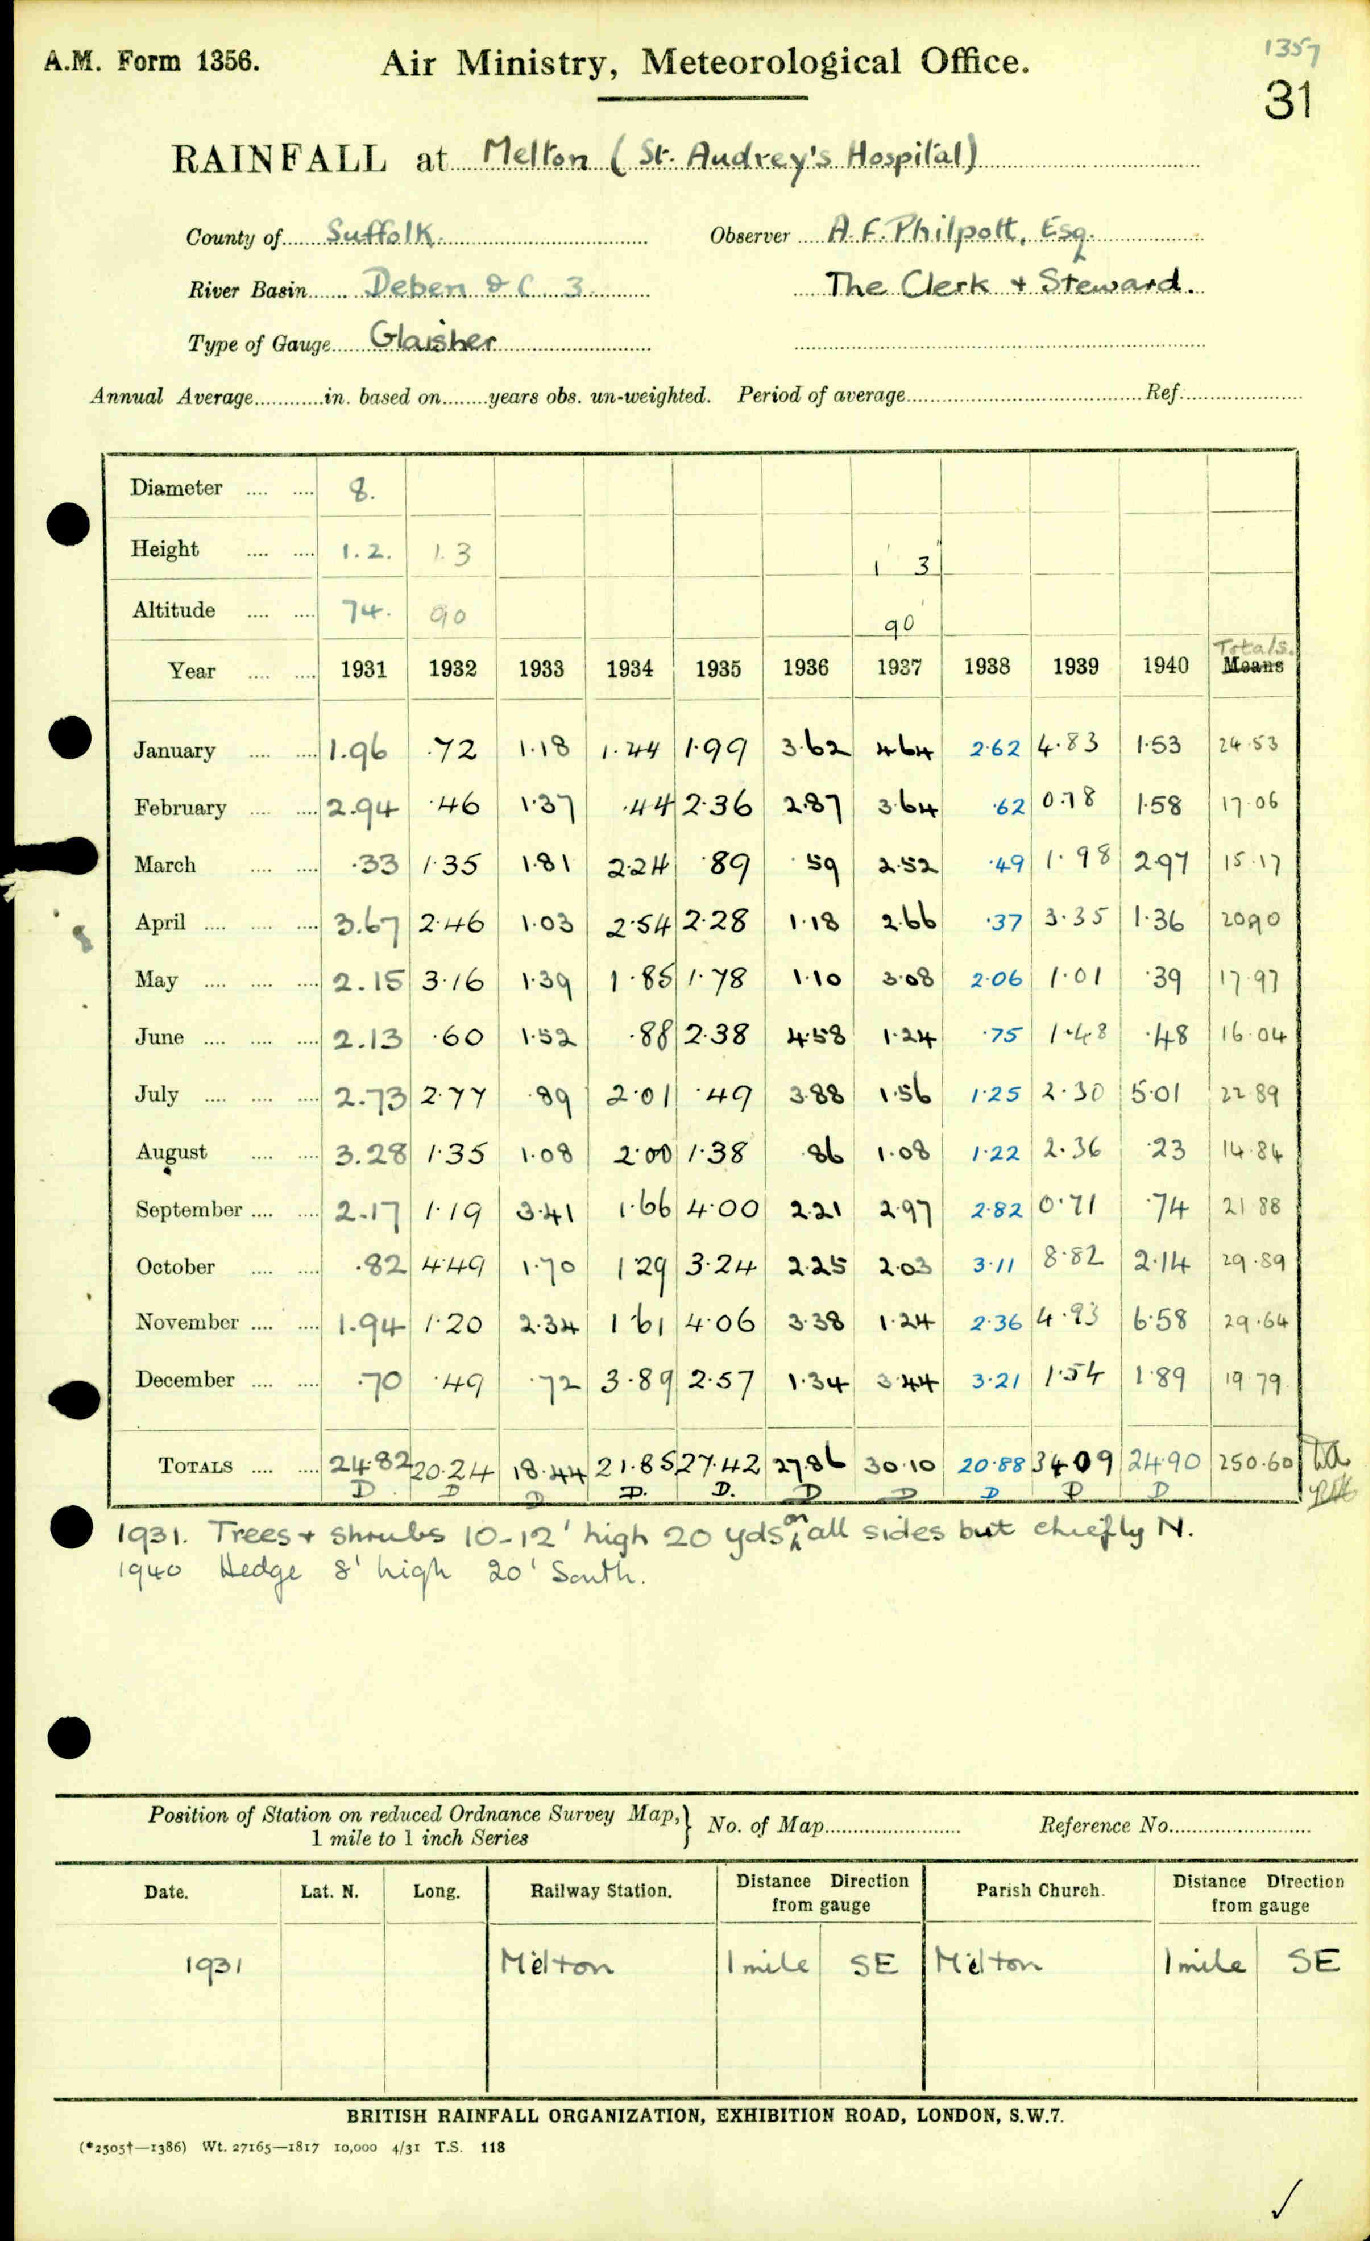 1357
A.M. Form 1356. Air Ministry, Meteorological Office. 31
RAINFALL at Melton (St. Audrey's Hospital)
County of Suffolk. Observer A.F. Philpott, Esq.
River Basin Deben & C 3 The Clerk + Steward.
Type of Gauge Glaisher
Annual Average............in. based on........years obs. un-weighted. Period of average.......... Ref..........
Diameter .... .... 8.
Height .... .... 1.2. 1.3 1' 3"
Altitude .... .... 74. 90 90'
Totals.
Year .... .... 1931 1932 1933 1934 1935 1936 1937 1938 1939 1940 Means
January .... .... 1.96 .72 1.18 1.44 1.99 3.62 4.64 2.62 4.83 1.53 24.53
February .... .... 2.94 .46 1.37 .44 2.36 2.87 3.64 .62 0.78 1.58 17.06
March .... .... .33 1.35 1.81 2.24 .89 .59 2.52 .49 1.98 2.97 15.17
April .... .... .... 3.67 2.46 1.03 2.54 2.28 1.18 2.66 .37 3.35 1.36 20.90
May .... .... .... 2.15 3.16 1.39 1.85 1.78 1.10 3.08 2.06 1.01 .39 17.97
June .... .... .... 2.13 .60 1.52 .88 2.38 4.58 1.24 .75 1.48 .48 16.04
July .... .... .... 2.73 2.77 .89 2.01 .49 3.88 1.56 1.25 2.30 5.01 22.89
August .... .... 3.28 1.35 1.08 2.00 1.38 .86 1.08 1.22 2.36 .23 14.84
September .... .... 2.17 1.19 3.41 1.66 4.00 2.21 2.97 2.82 0.71 .74 21.88
October .... .... .82 4.49 1.70 1.29 3.24 2.25 2.03 3.11 8.82 2.14 29.89
November .... .... 1.94 1.20 2.34 1.61 4.06 3.38 1.24 2.36 4.93 6.58 29.64
December .... .... .70 .49 .72 3.89 2.57 1.34 3.44 3.21 1.54 1.89 19.79
TOTALS .... .... 24.82 20.24 18.44 21.85 27.42 27.86 30.10 20.88 34.09 24.90 250.60
D D D D. D. D D D D D
1931. Trees + shrubs 10-12' high 20 yds on all sides but chiefly N.
1940 Hedge 8' high 20' South.
Position of Station on reduced Ordnance Survey Map, 1 mile to 1 inch Series } No. of Map.......... Reference No..........
Date. Lat. N. Long. Railway Station. Distance Direction from gauge Parish Church. Distance Direction from gauge
1931 Melton 1 mile SE Melton 1 mile SE
BRITISH RAINFALL ORGANIZATION, EXHIBITION ROAD, LONDON, S.W.7.
(*2505†—1386) Wt. 27165—1817 10,000 4/31 T.S. 118